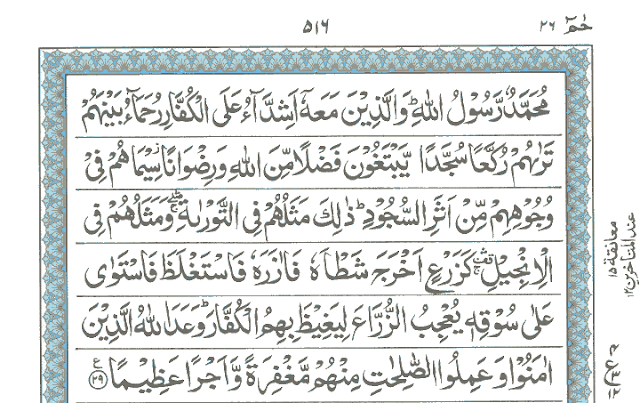 حٰمٓ ٢٦
٥١٦
مُحَمَّدٌ رَّسُوْلُ اللّٰهِ ؕ وَالَّذِيْنَ مَعَهٗۤ اَشِدَّآءُ عَلَى الْكُفَّارِ رُحَمَآءُ بَيْنَهُمْ
تَرٰىهُمْ رُكَّعًا سُجَّدًا يَّبْتَغُوْنَ فَضْلًا مِّنَ اللّٰهِ وَرِضْوَانًا ؗ سِيْمَاهُمْ فِيْ
وُجُوْهِهِمْ مِّنْ اَثَرِ السُّجُوْدِ ؕ ذٰلِكَ مَثَلُهُمْ فِي التَّوْرٰىةِ ۛۖۚ وَمَثَلُهُمْ فِي
الْاِنْجِيْلِ ۛ۫ۚ كَزَرْعٍ اَخْرَجَ شَطْـَٔهٗ فَاٰزَرَهٗ فَاسْتَغْلَظَ فَاسْتَوٰى
عَلٰى سُوْقِهٖ يُعْجِبُ الزُّرَّاعَ لِيَغِيْظَ بِهِمُ الْكُفَّارَ ؕ وَعَدَ اللّٰهُ الَّذِيْنَ
اٰمَنُوْا وَعَمِلُوا الصّٰلِحٰتِ مِنْهُمْ مَّغْفِرَةً وَّاَجْرًا عَظِيْمًا ۧ ﴿٢٩﴾
معانقة ١٥
عند المتاخرين ١٢